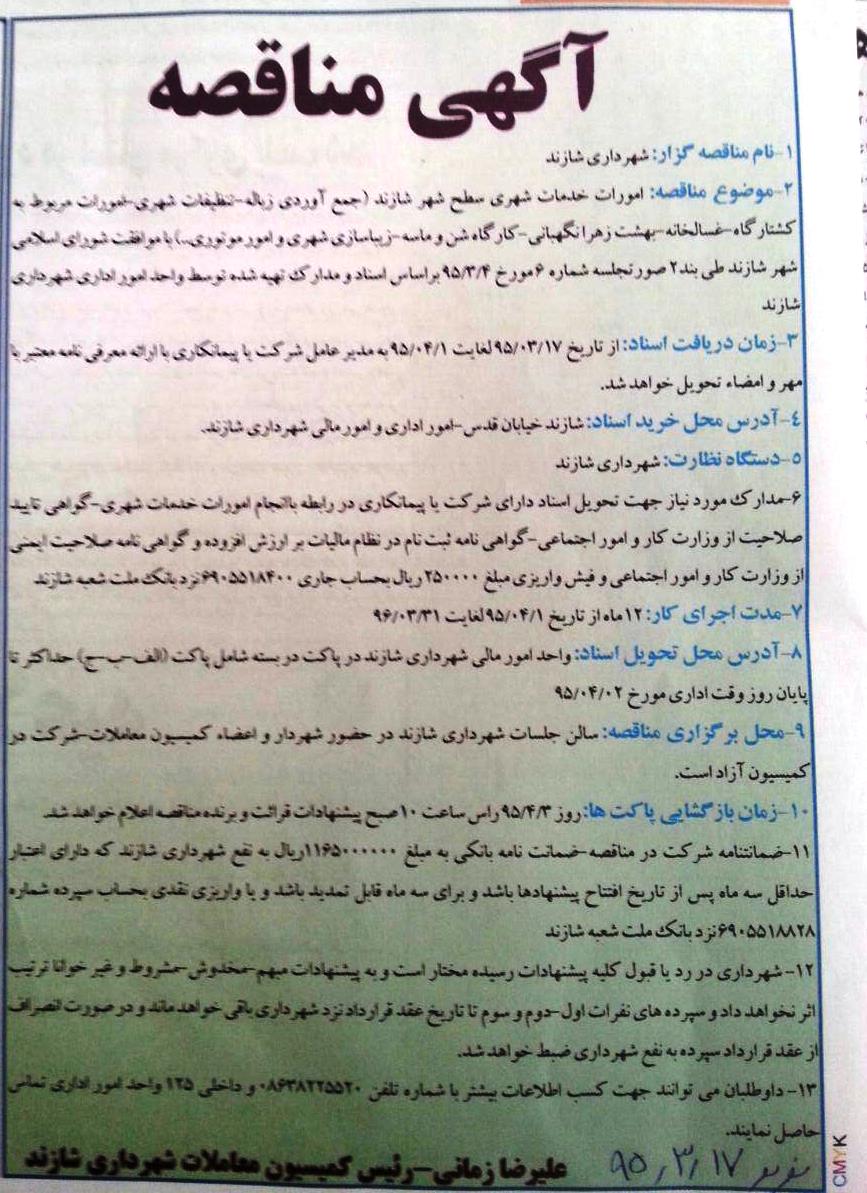 آگهی مناقصه
۱-نام مناقصه گزار: شهرداری شازند
۲-موضوع مناقصه: امورات خدمات شهری سطح شهر شازند (جمع آوردی زباله-تنظیفات شهری-امورات مربوط به
کشتارگاه-غسالخانه-بهشت زهرا نگهبانی-کارگاه شن و ماسه-زیباسازی شهری و امور موتوری..) با موافقت شورای اسلامی
شهر شازند طی بند۲ صورتجلسه شماره ۶مورخ ۹۵/۳/۴ براساس اسناد و مدارک تهیه شده توسط واحد امور اداری شهرداری
شازند
۳-زمان دریافت اسناد: از تاریخ ۹۵/۰۳/۱۷ لغایت ۹۵/۰۴/۱ به مدیر عامل شرکت یا پیمانکاری با ارائه معرفی نامه معتبر با
مهر و امضاء تحویل خواهد شد.
۴-آدرس محل خرید اسناد: شازند خیابان قدس-امور اداری و امور مالی شهرداری شازند.
۵-دستگاه نظارت: شهرداری شازند
۶-مدارک مورد نیاز جهت تحویل اسناد دارای شرکت یا پیمانکاری در رابطه باانجام امورات خدمات شهری-گواهی تایید
صلاحیت از وزارت کار و امور اجتماعی-گواهی نامه ثبت نام در نظام مالیات بر ارزش افزوده و گواهی نامه صلاحیت ایمنی
از وزارت کار و امور اجتماعی و فیش واریزی مبلغ ۲۵۰۰۰۰ ریال بحساب جاری ۶۹۰۵۵۱۸۴۰۰نزد بانک ملت شعبه شازند
۷-مدت اجرای کار: ۱۲ماه از تاریخ ۹۵/۰۴/۱ لغایت ۹۶/۰۳/۳۱
۸-آدرس محل تحویل اسناد: واحد امور مالی شهرداری شازند در پاکت در بسته شامل پاکت (الف-ب-ج) حداکثر تا
پایان روز وقت اداری مورخ ۹۵/۰۴/۰۲
۹-محل برگزاری مناقصه: سالن جلسات شهرداری شازند در حضور شهردار و اعضاء کمیسیون معاملات-شرکت در
کمیسیون آزاد است.
۱۰-زمان بازگشایی پاکت ها: روز ۹۵/۴/۳ راس ساعت ۱۰صبح پیشنهادات قرائت و برنده مناقصه اعلام خواهد شد.
۱۱-ضمانتنامه شرکت در مناقصه-ضمانت نامه بانکی به مبلغ ۱۱۶۵۰۰۰۰۰۰ریال به نفع شهرداری شازند که دارای اعتبار
حداقل سه ماه پس از تاریخ افتتاح پیشنهادها باشد و برای سه ماه قابل تمدید باشد و یا واریزی نقدی بحساب سپرده شماره
۶۹۰۵۵۱۸۸۲۸نزد بانک ملت شعبه شازند
۱۲- شهرداری در رد یا قبول کلیه پیشنهادات رسیده مختار است و به پیشنهادات مبهم-مخدوش-مشروط و غیر خوانا ترتیب
اثر نخواهد داد و سپرده های نفرات اول-دوم و سوم تا تاریخ عقد قرارداد نزد شهرداری باقی خواهد ماند و در صورت انصراف
از عقد قرارداد سپرده به نفع شهرداری ضبط خواهد شد.
۱۳- داوطلبان می توانند جهت کسب اطلاعات بیشتر با شماره تلفن ۰۸۶۳۸۲۲۵۵۲۰ و داخلی ۱۲۵ واحد امور اداری تماس
حاصل نمایند.
علیرضا زمانی-رئیس کمیسیون معاملات شهرداری شازند
۹۵،۳،۱۷
CMYK